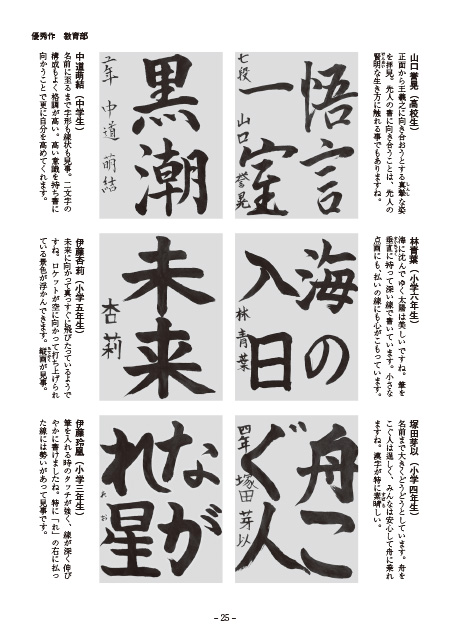 優秀作　教育部
山口 誉晃（高校生）
正面から王羲之に向き合おうとする真摯な姿
を拝見。先人の書に向き合うことは、先人の
賢明な生き方に触れる事でもありますね。
悟言
一室
七段 山口 誉晃
中道萌結（中学生）
名前に至るまで字形も線状も見事。二文字の
構成もよく格調が高い。高い意識を持ち書に
向かうことで更に自分を高めてくれます。
黒潮
二年 中道 萌結
林青葉（小学六年生）
海に沈んでゆく太陽は美しいですね。筆を
垂直に持って深い線で書いています。小さな
点画にも、払いの線にも心がこもっています。
海の
入日
林青葉
伊藤杏莉（小学五年生）
未来に向かって真っすぐに飛びたっているようで
すね。ロケットが空に向かって打ち上げられ
ている景色が浮かんできます。縦画が見事。
未来
杏莉
塚田芽以（小学四年生）
名前まで大きくどうどうとしています。舟を
こぐ人は逞しく、みんなは安心して舟に乗れ
ますね。漢字が特に素晴しい。
舟こ
ぐ人
四年 塚田 芽以
伊藤玲凰（小学三年生）
筆を入れる時のタッチが強く、線が深く伸び
やかに書けましたね。特に「れ」の右に払っ
た線には勢いがあって見事です。
なが
れ星
れお
- 25 -